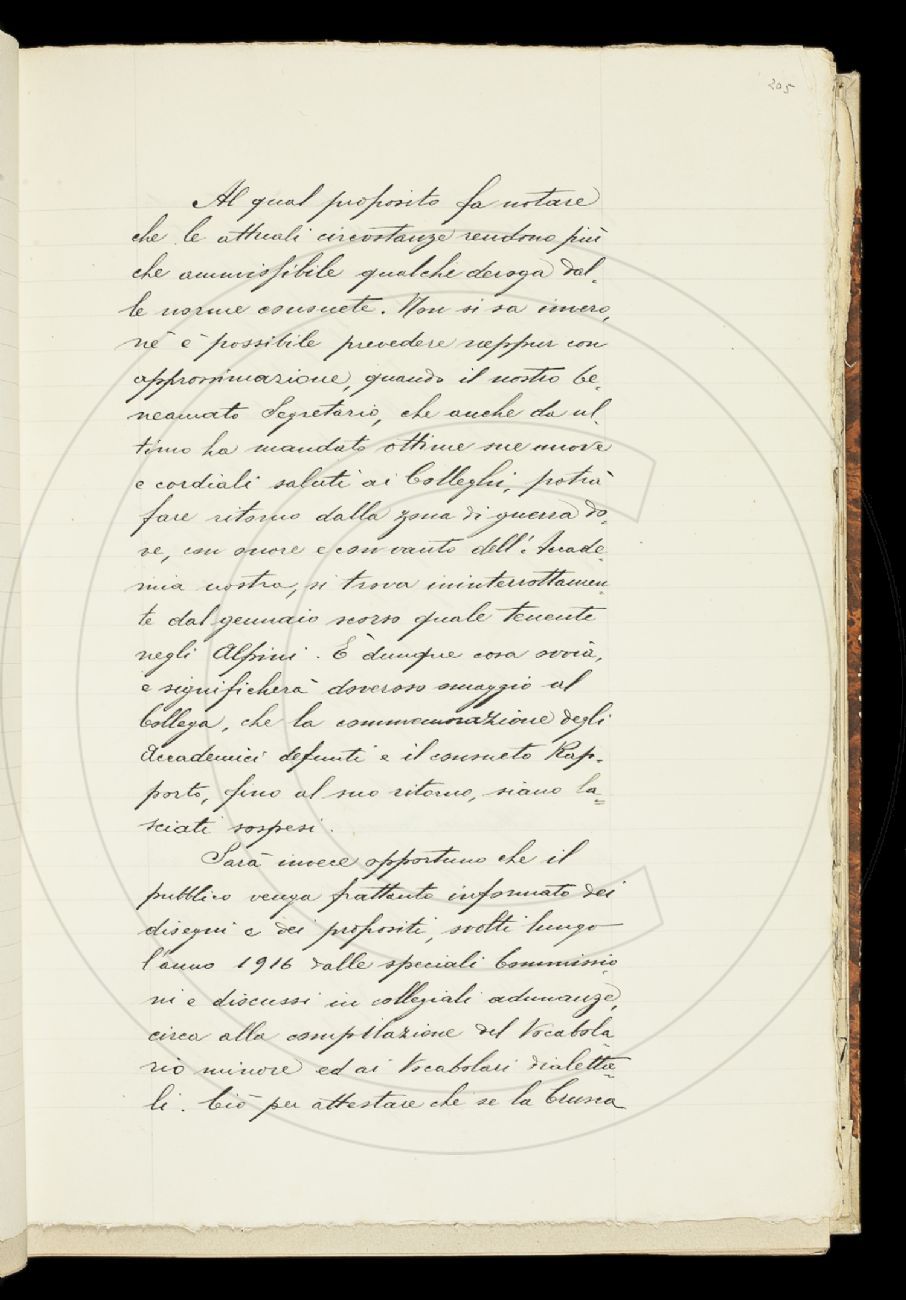 205
Al qual proposito fa notare
che le attuali circostanze rendono più
che ammissibile qualche deroga dal-
le norme consuete. Non si sa invero,
nè è possibile prevedere neppur con
approssimazione, quando il nostro be-
neamato Segretario, che anche da ul-
timo ha mandato ottime sue nuove
e cordiali saluti ai Colleghi, potrà
fare ritorno dalla zona di guerra do-
ve, con onore e con vanto dell'Accade-
mia nostra, si trova ininterrottamen-
te dal gennaio scorso quale tenente
negli Alpini. È dunque cosa ovvia,
e significherà doveroso omaggio al
Collega, che la commemorazione degli
Accademici defunti e il consueto Rap-
porto, fino al suo ritorno, siano la-
sciati sospesi.
Sarà invece opportuno che il
pubblico venga frattanto informato dei
disegni e dei propositi, svolti lungo
l'anno 1916 dalle speciali Commissio-
ni e discussi in collegiali adunanze,
circa alla compilazione del Vocabola-
rio minore ed ai Vocabolari dialetta-
li. Ciò per attestare che se la Crusca